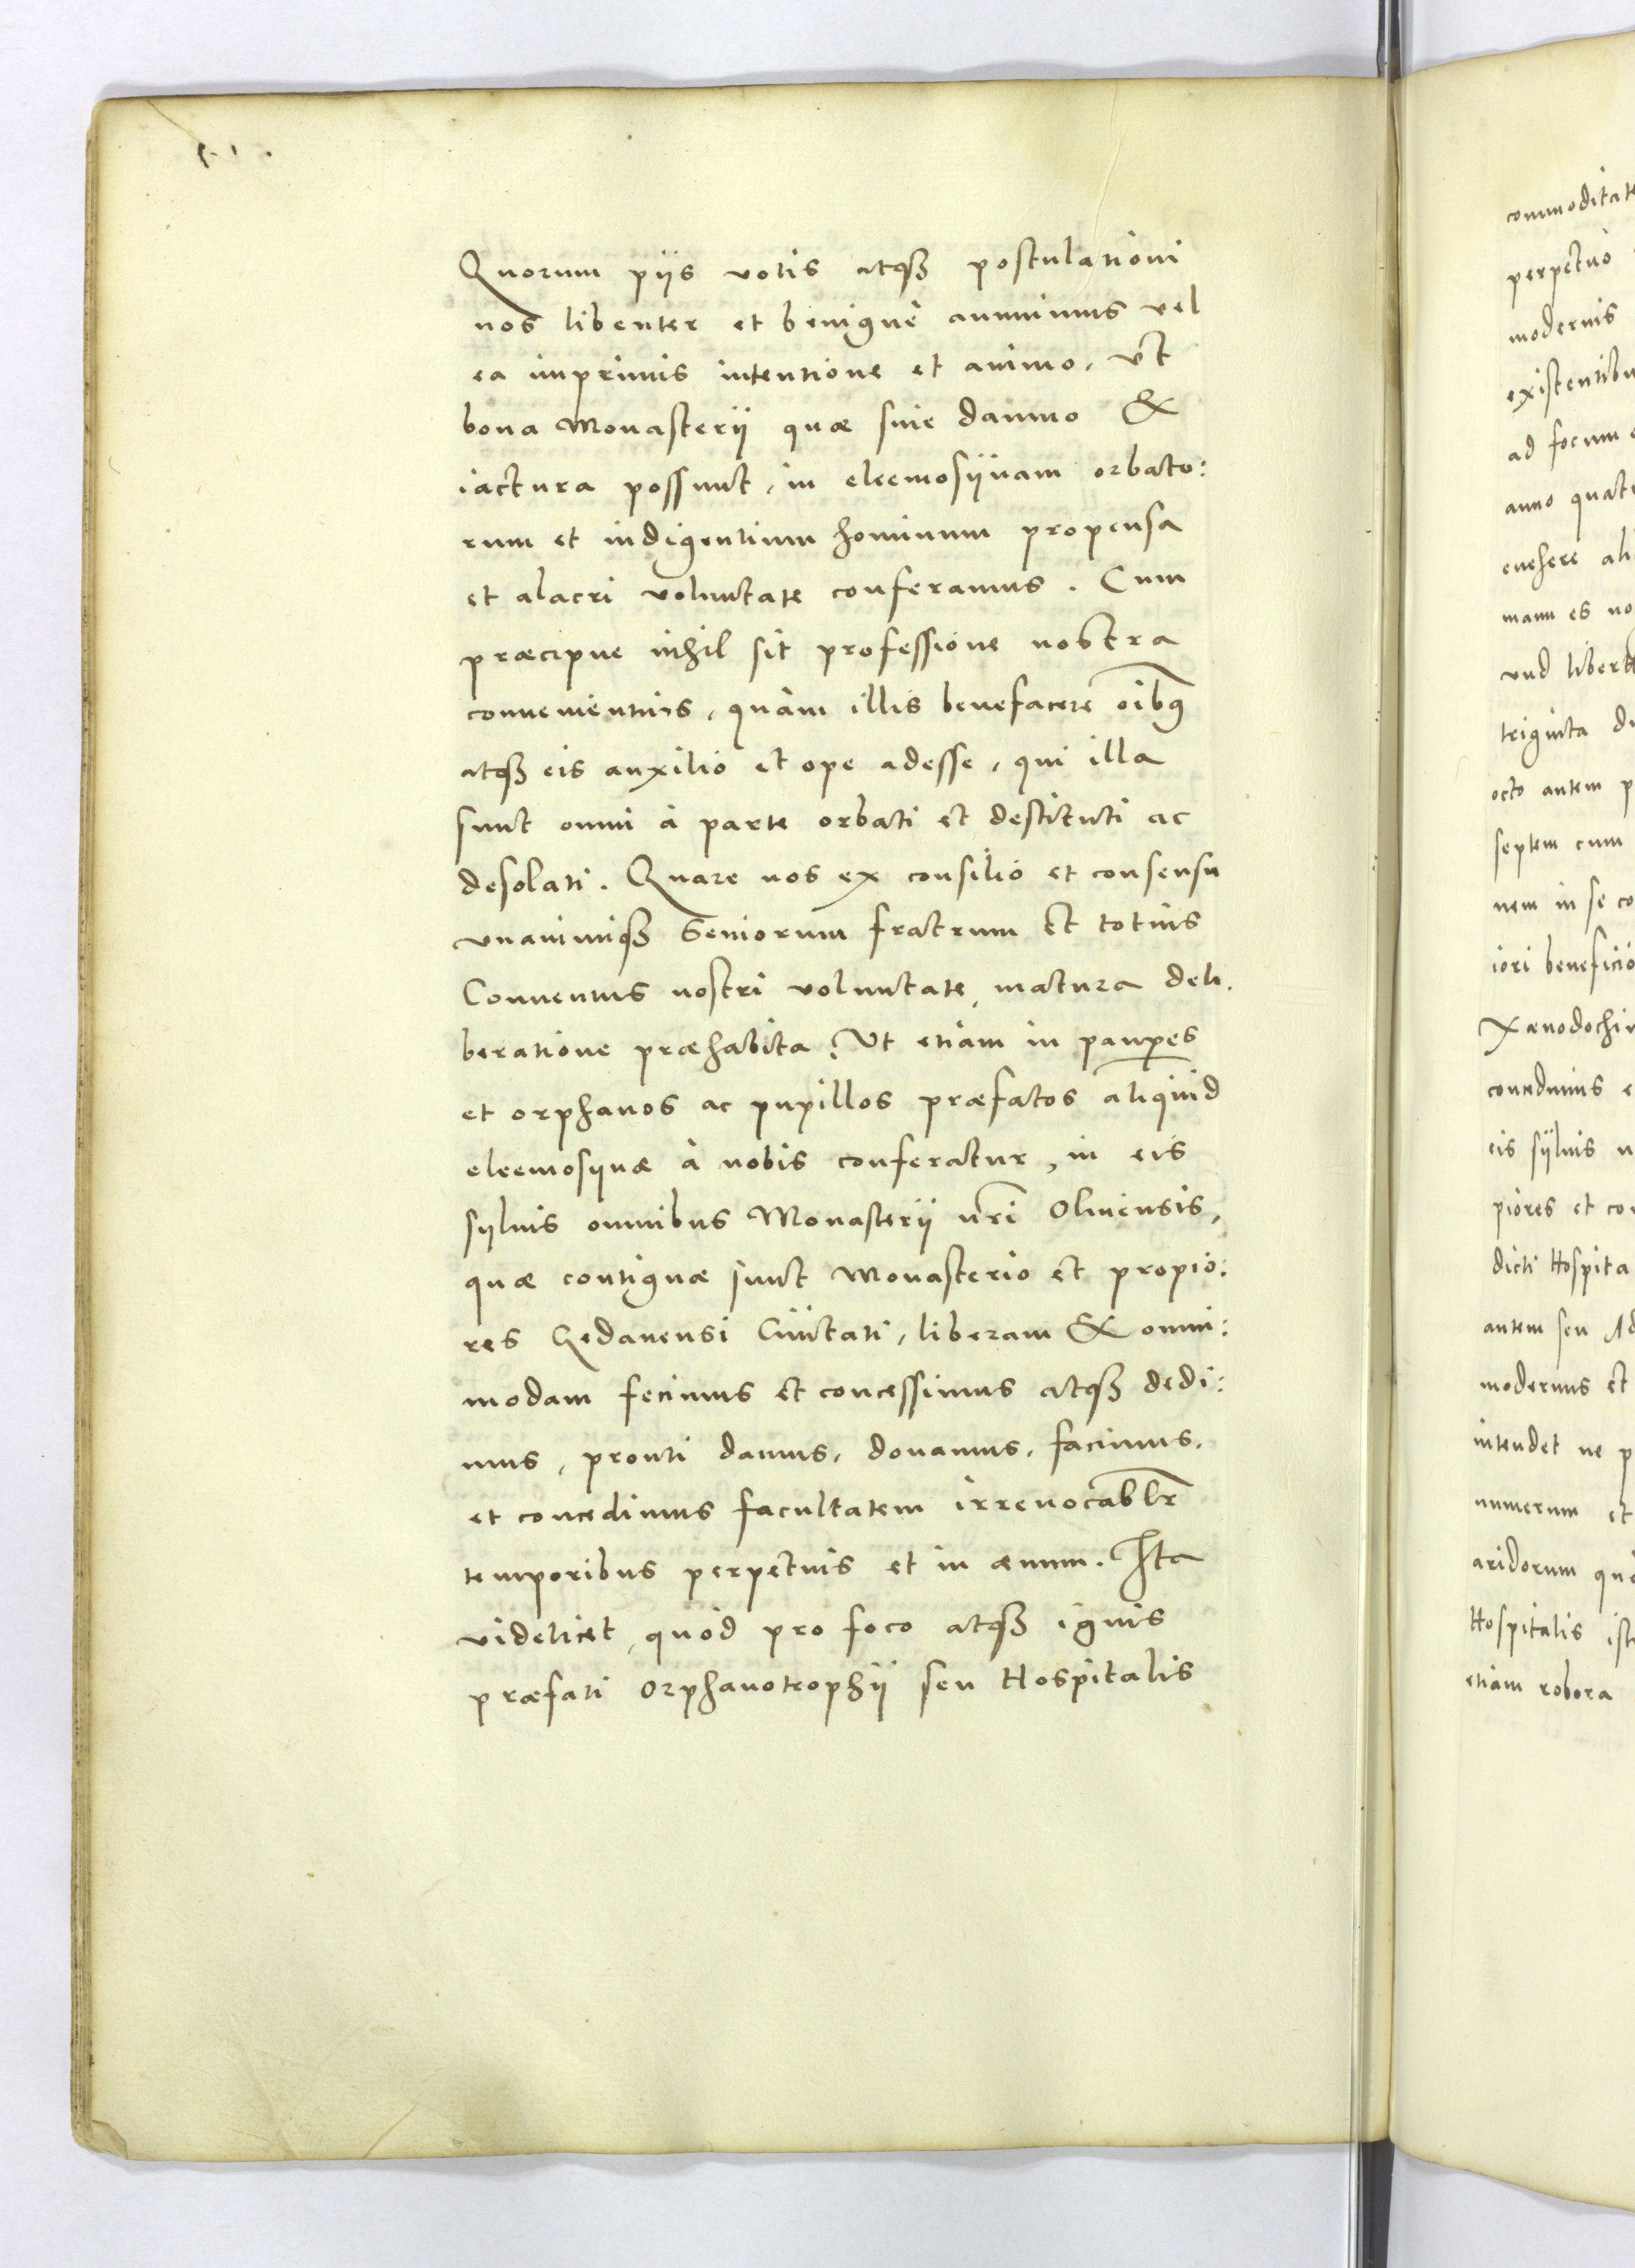 Quorum piis votis atqꝫ postulationi
nos libenter et benignè annuimus vel
ea imprimis intentione et animo, vt
bona Monasterij quæ sine damno &
iactura possunt, in eleemosijnam orbato:
rum et indigentium hominum propensa
et alacri voluntate conferamus. Cum
præcipue nihil sit professione nostra
conuenientius, quàm illis benefacere oībꝰ
atqꝫ eis auxilio et ope adesse, qui illa
sunt omni à parte orbati et destituti ac
desolati. Quare nos ex consilio et consensu
vnanimiqꝫ Seniorum fratrum et totius
Conuentus nostri voluntate, matura deli:
beratione præhabita: Vt etiam in pauꝑes
et orphanos ac pupillos præfatos aliquid
eleemosijnæ à nobis conferatur, in eis
sijluis omnibus Monasterij nr̄i Oliuensis,
quæ contiguæ sunt Monasterio et propio:
res Gedanensi Ciuitati, liberam & omni:
modam fecimus et concessimus atqꝫ dedi:
mus, prouti damus, donamus, facimus,
et concedimus facultatem irreuocabl̄r
temporibus perpetuis et in æuum. Ita
videlicet, quòd pro foco atqꝫ ignis
præfati Orphanotrophij seu Hospitalis
commoditate
perpetuo
modernis
existentibu
ad focum
anno quat
euehere ali
manu es no
vnd libert
triginta du
octo autem p
septem cum
nem in se co
iori beneficio
Xænodochi
concedimus e
eis sijluis n
piores et co
dicti Hospita
autem seu Ad
modernus et
intendet ne p
numerum et
aridorum
Hospitalis ist
etiam robora